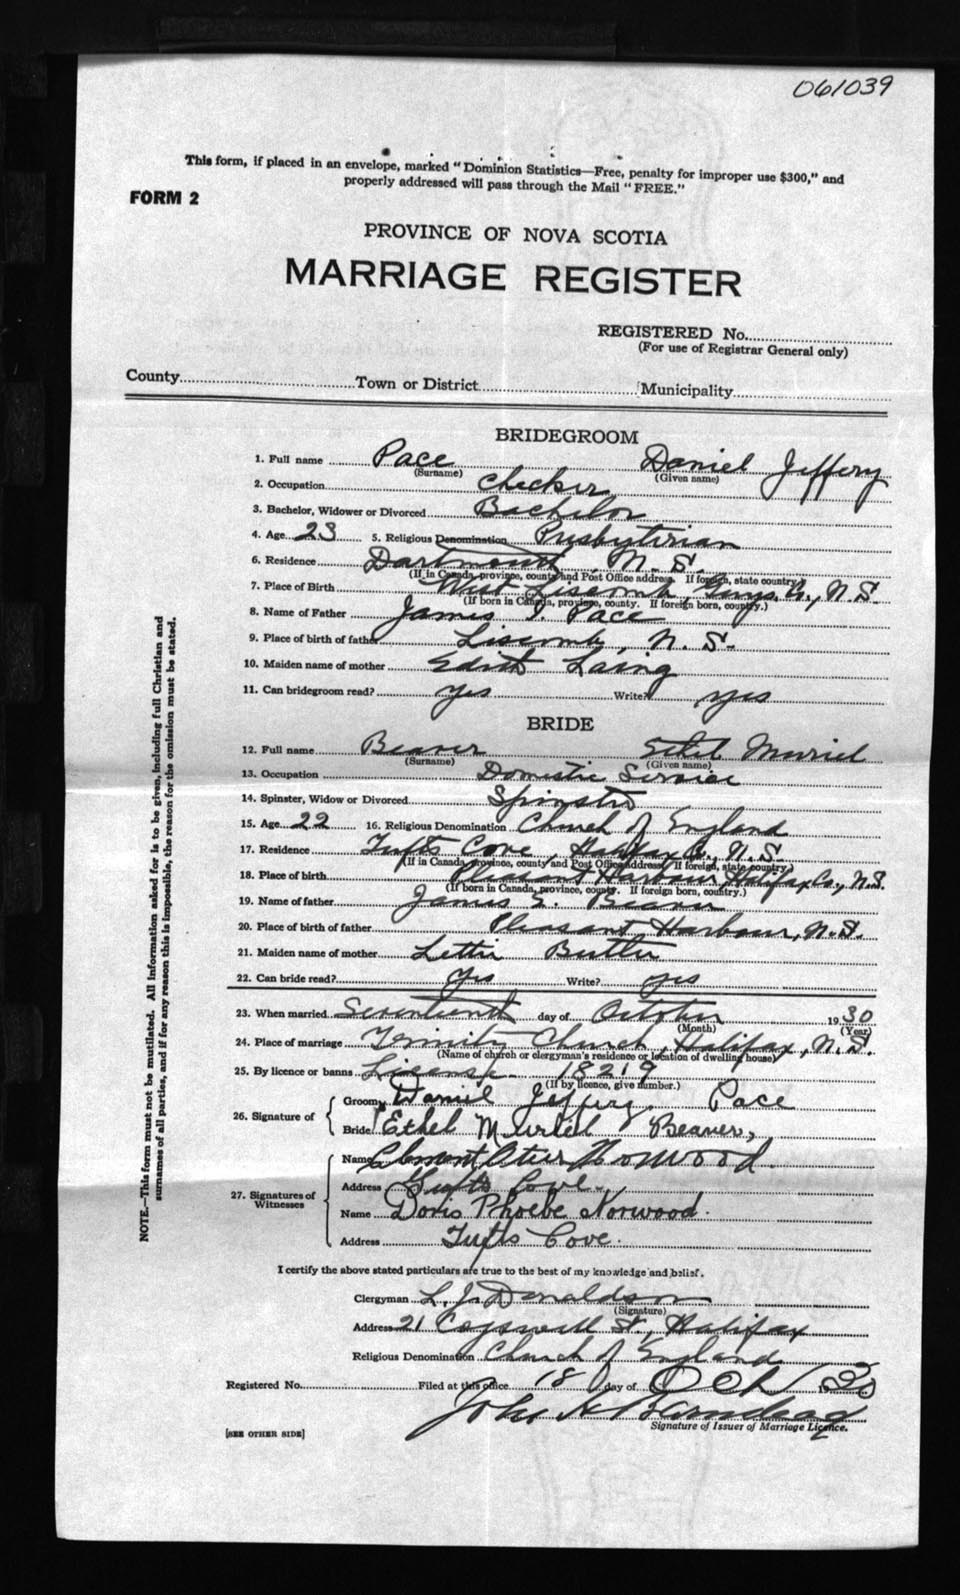 061039
This form, if placed in an envelope, marked "Dominion Statistics—Free, penalty for improper use $300," and
properly addressed will pass through the Mail "FREE."
FORM 2
PROVINCE OF NOVA SCOTIA
MARRIAGE REGISTER
REGISTERED No.
(For use of Registrar General only)
County Town or District Municipality
BRIDEGROOM
1. Full name Pace Daniel Jeffery
(Surname) (Given name)
2. Occupation checker
3. Bachelor, Widower or Divorced Bachelor
4. Age 23 5. Religious Denomination Presbyterian
6. Residence Dartmouth, N. S.
(If in Canada, province, county and Post Office address. If foreign, state country.)
7. Place of Birth West Liscomb, Guys. Co., N. S.
(If born in Canada, province, county. If foreign born, country.)
8. Name of Father James I. Pace
9. Place of birth of father Liscomb, N. S.
10. Maiden name of mother Edith Laing
11. Can bridegroom read? yes Write? yes
BRIDE
12. Full name Beaver Ethel Muriel
(Surname) (Given name)
13. Occupation Domestic Service
14. Spinster, Widow or Divorced Spinster
15. Age 22 16. Religious Denomination Church of England
17. Residence Tufts Cove, Halifax Co., N. S.
(If in Canada, province, county and Post Office address. If foreign, state country.)
18. Place of birth Pleasant Harbour, Halifax Co., N. S.
(If born in Canada, province, county. If foreign born, country.)
19. Name of father James E. Beaver
20. Place of birth of father Pleasant Harbour, N. S.
21. Maiden name of mother Lettie Butler
22. Can bride read? yes Write? yes
23. When married Seventeenth day of October 1930
(Month) (Year)
24. Place of marriage Trinity Church, Halifax, N. S.
(Name of church or clergyman's residence or location of dwelling house)
25. By licence or banns License 18219
(If by licence, give number.)
26. Signature of Groom Daniel Jeffery Pace
Bride Ethel Muriel Beaver
27. Signatures of Witnesses Name Clement Norwood
Address Tufts Cove
Name Doris Phoebe Norwood
Address Tufts Cove
I certify the above stated particulars are true to the best of my knowledge and belief.
Clergyman L. J. Donaldson
(Signature)
Address 21 Cogswell St., Halifax
Religious Denomination Church of England
Registered No. Filed at this office 18 day of Oct 1930
John A
Signature of Issuer of Marriage Licence.
[SEE OTHER SIDE]
NOTE.—This form must not be mutilated. All information asked for is to be given, including full Christian and
surnames of all parties, and if for any reason this is impossible, the reason for the omission must be stated.